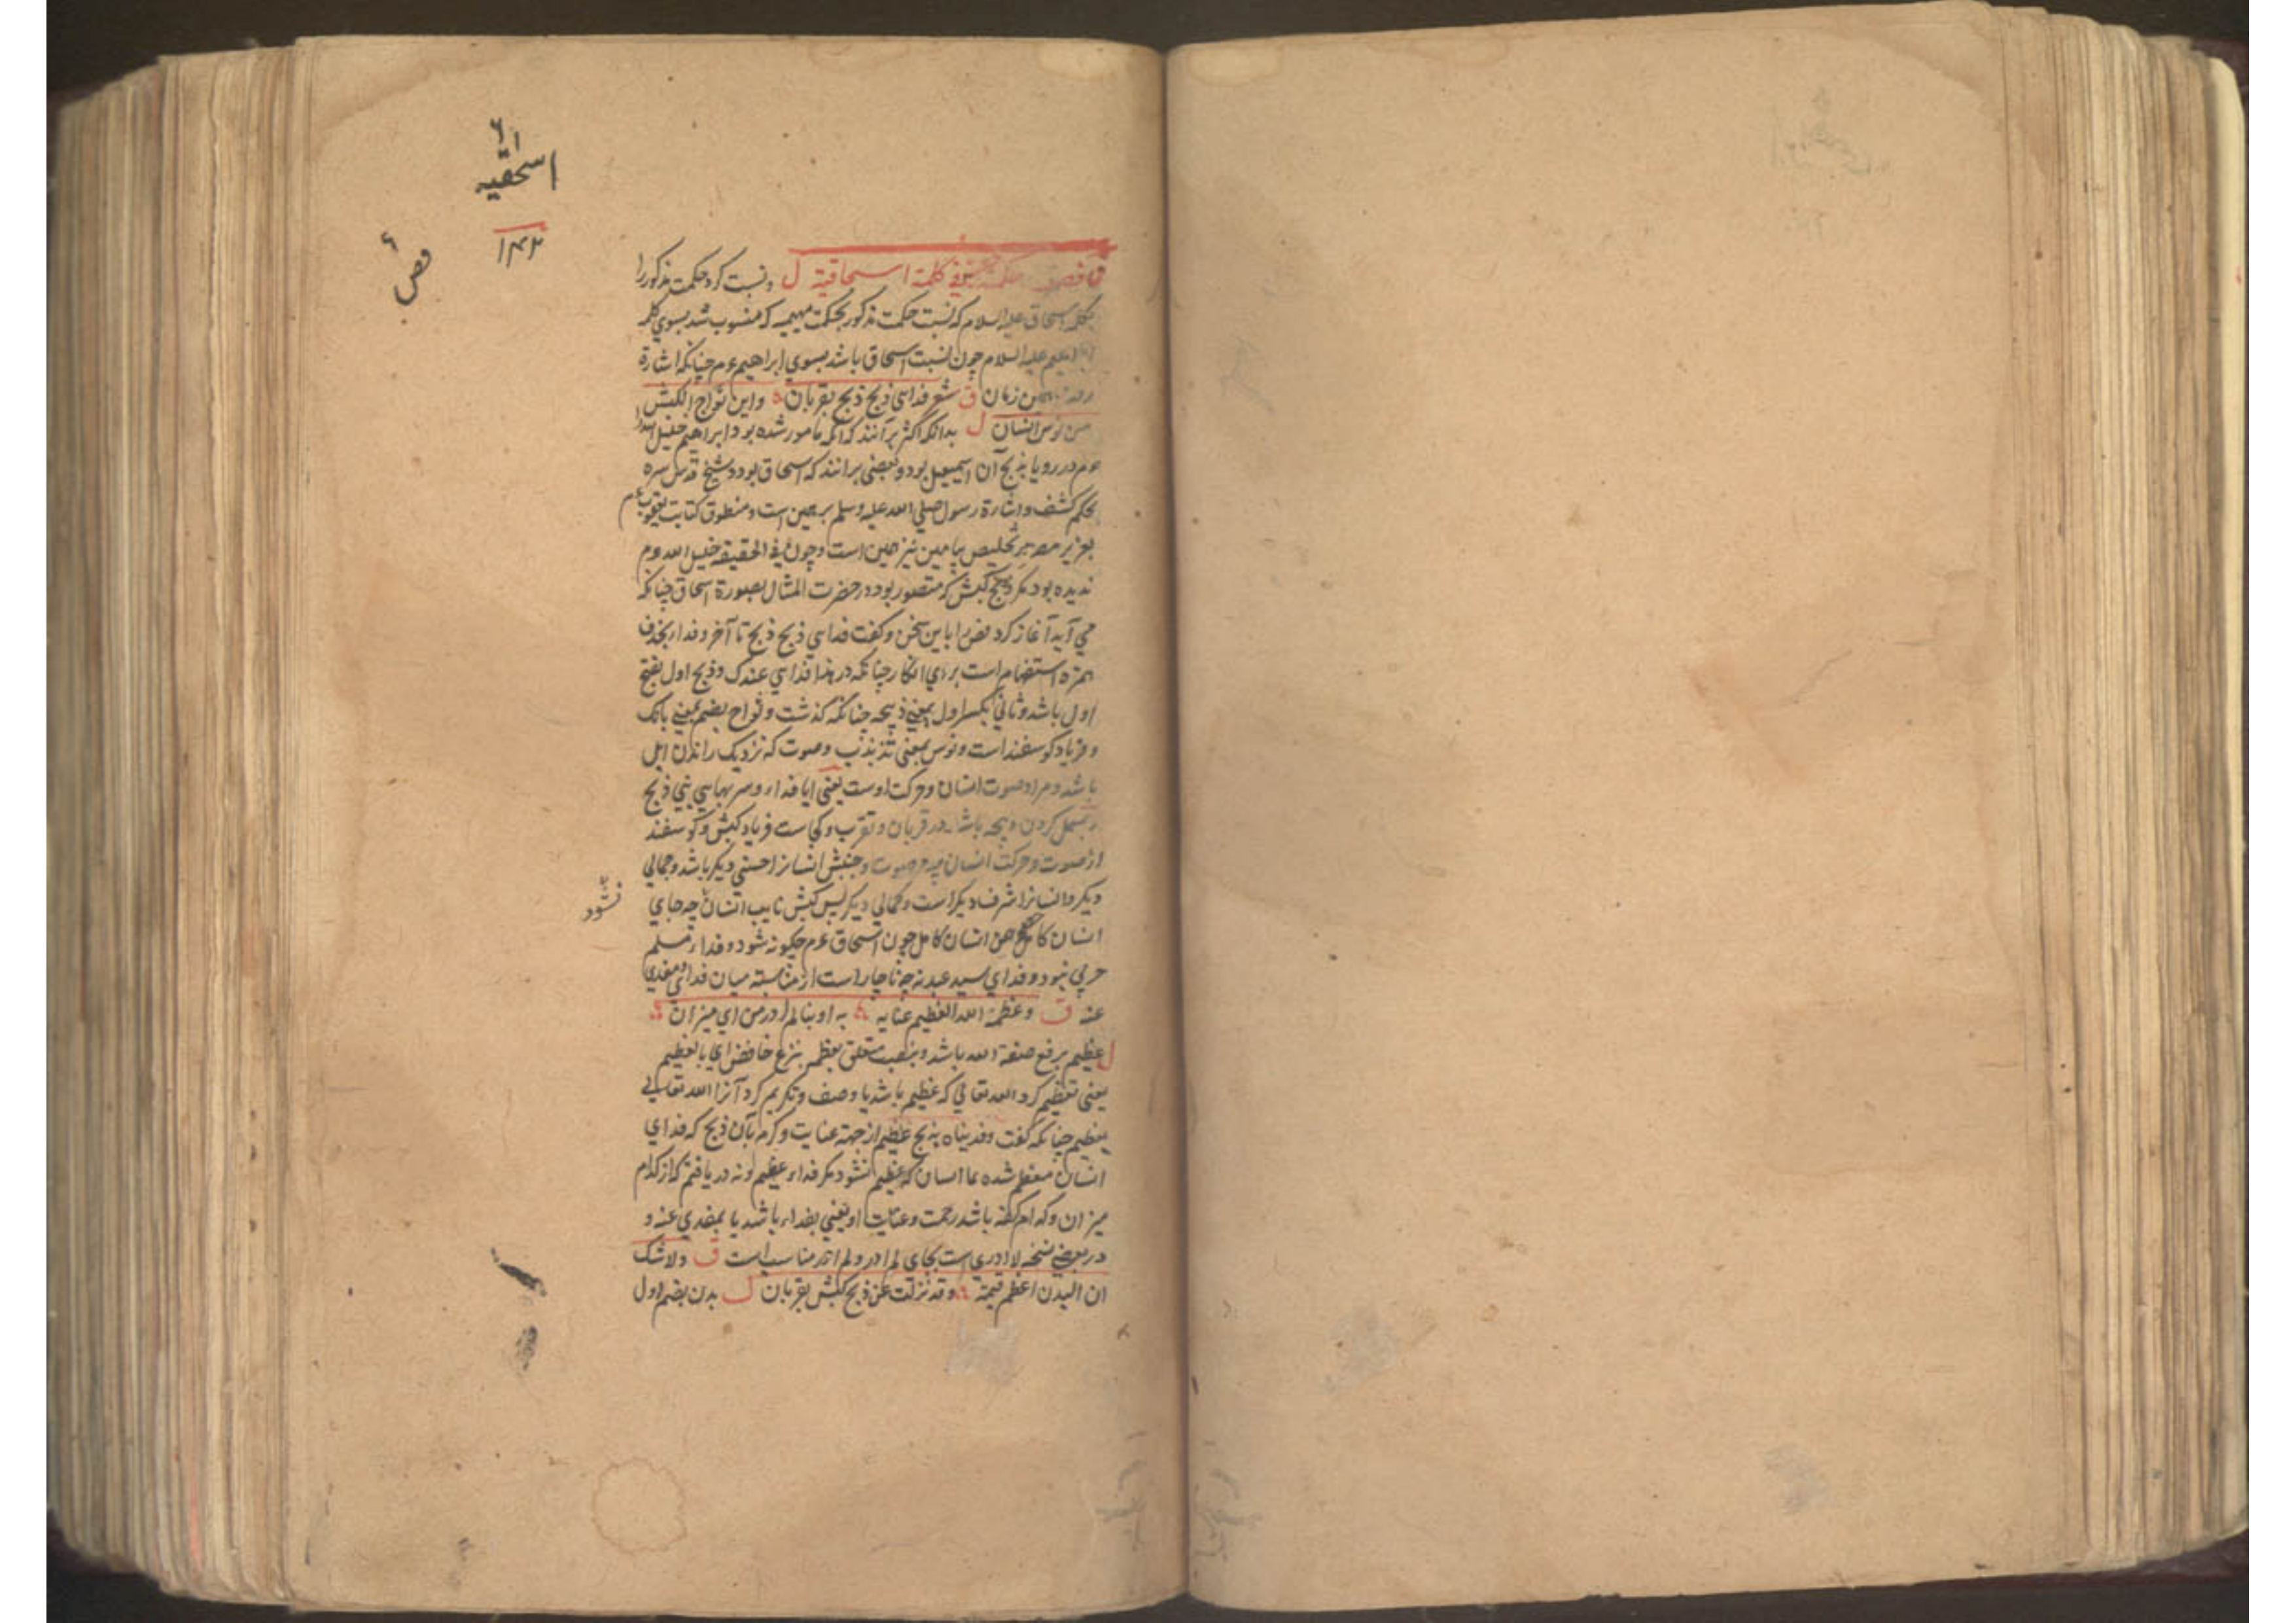 اسحقیه
۱۴۳
فص
ق فص حکمة حقیة في کلمة اسحاقیة ل و نسبت کرد حکمت مذکور را
بکلمه اسحاق علیه السلام که نسبت حکمت مذکور بحکمت مهیمیه که منسوب شد بسوي کلمه
ابراهیم علیه السلام چون نسبت اسحاق باشد بسوي ابراهیم عم چنانکه اشارة
زمان ق شعر فداء نبي ذبح ذبح بقربان و این ثواج الکبش
من نوس انسان ل بدانکه اکثر برآنند که آنکه مامور شده بود ابراهیم خلیل الله
عم در رویا بذبح آن اسمعیل بود و بعضی برانند که اسحاق بود و شیخ قدس سره
بحکم کشف و اشارة رسول صلي الله علیه وسلم بر همین است و منطوق کتابت یعقوب عم
بعزیز مصر تخلیص بیامین نیز همین است و چون في الحقیقة خلیل الله عم
ندیده بود مکر ذبح کبش که متصور بود در حضرت المثال بصورة اسحاق چنانکه
مي آید آغاز کرد فص را باین سخن و کفت فداء نبي ذبح ذبح تا آخر و فداء بحذف
همزه استفهام است براي انکار چنانکه در هذا فداء نبي عندک و ذبح اول بفتح
اول باشد و ثاني بکسر اول بمعني ذبیحه چنانکه کذشت و ثواج بضم بمعني بانک
و فریاد کوسفند است و نوس بمعنی تذبذب و صوت که نزدیک راندن ابل
باشد و مراد صوت انسان و حرکت اوست یعنی ایا فداء و سر بهاي نبي ذبح
بسمل کردن ذبیحه باشد در قربان و تقرب و کجاست فریاد کبش و کوسفند
از صوت و حرکت انسان چه صوت و جنبش انسانرا حسنی دیکر باشد و جمالي
دیکر و انسانرا شرف دیکر است و کمالي دیکر پس کبش نایب انسان چه جاي
نشود
انسان کامل انسان کامل چون اسحاق عم چکونه شود و فداء مسلم
حربي نبود و فداي سید عبد نه چه ناچار است از مناسبة میان فداء و مفدي
عنه ق و عظمه الله العظیم عنایة به او بنا لم ادر من اي میزان
ل عظیم برفع صفة الله باشد و بنصب متعلق بعظم بنزع خافض اي بالعظیم
یعنی تعظیم کرد الله تعالي که عظیم باشد یا وصف و تکریم کرد آنرا الله تعالي
بعظیم چنانکه کفت و فدیناه بذبح عظیم از جهة عنایت و کرم بآن ذبح که فداي
انسان معظم شده یا انسان که عظیم نشود مکر فداء عظیم و نه دریافتم که از کدام
میزان و کدام کفه باشد رحمت و عنایت او یعني بفداء باشد یا بمفدي عنه و
در بعضي نسخه لا ادري است بجاي لم ادر و لم ادر مناسب است ق و لا شک
ان البدن اعظم قیمة و قد نزلت عن ذبح کبش بقربان ل بدن بضم اول